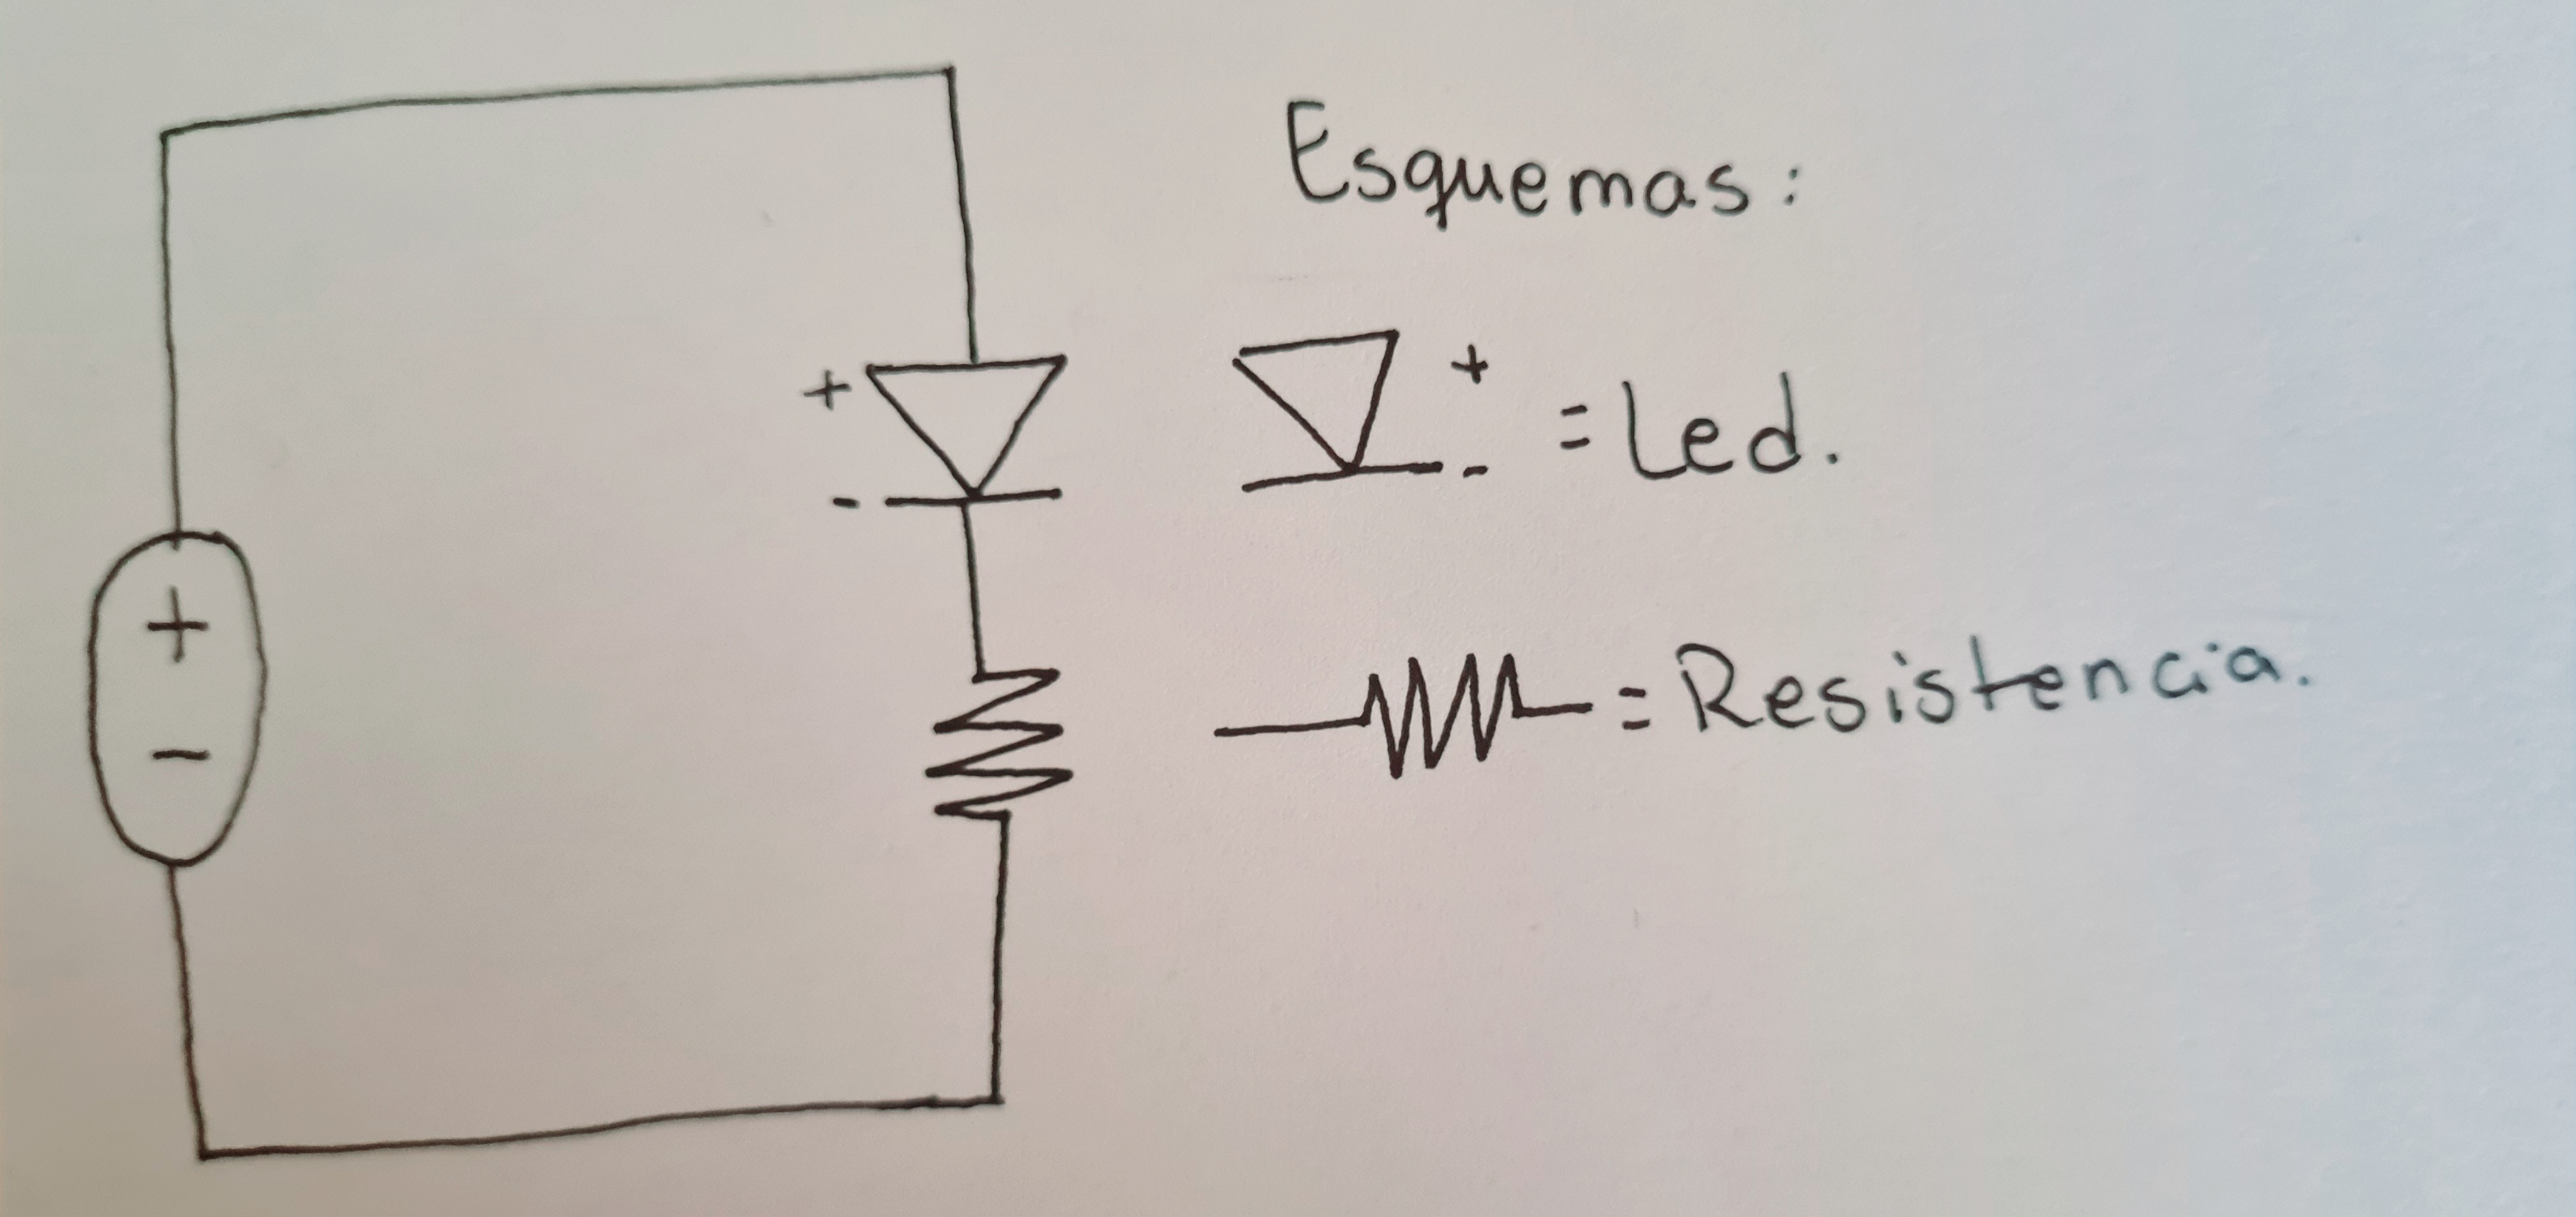 Esquemas:
+
+
-
-
= Led.
+
-
= Resistencia.